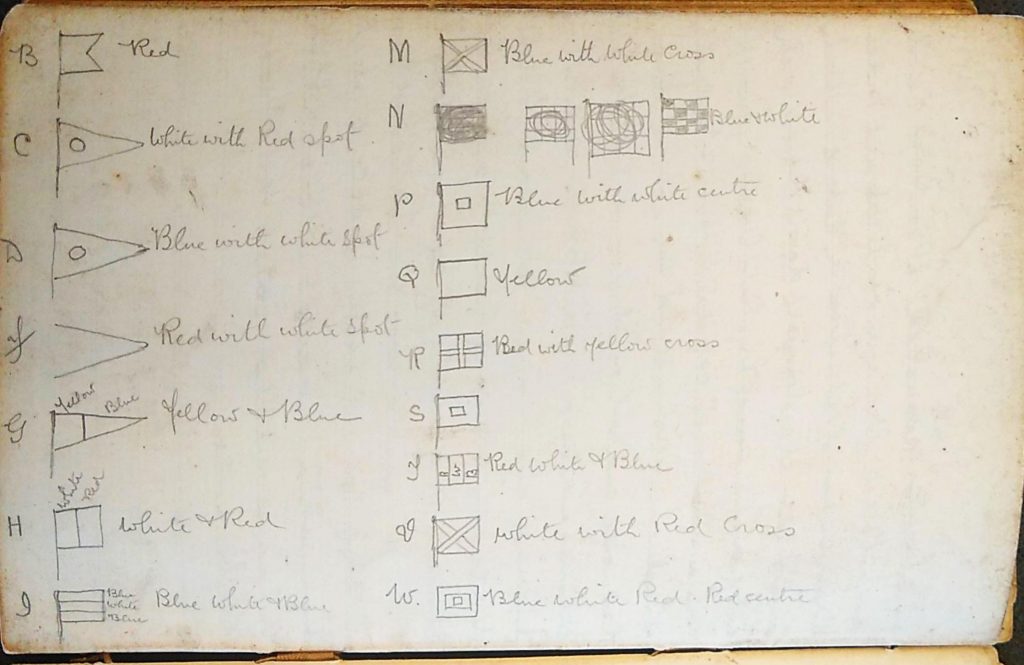 B Red
C White with Red spot
D Blue with white spot
F Red with white spot
Yellow Blue
G Yellow & Blue
White Red
H White & Red
Blue
White
Blue
J Blue White & Blue
M Blue with White Cross
N Blue & White
P Blue with white centre
Q Yellow
R Red with yellow cross
S
T R W B Red White & Blue
V White with Red Cross
W. Blue White Red. Red centre